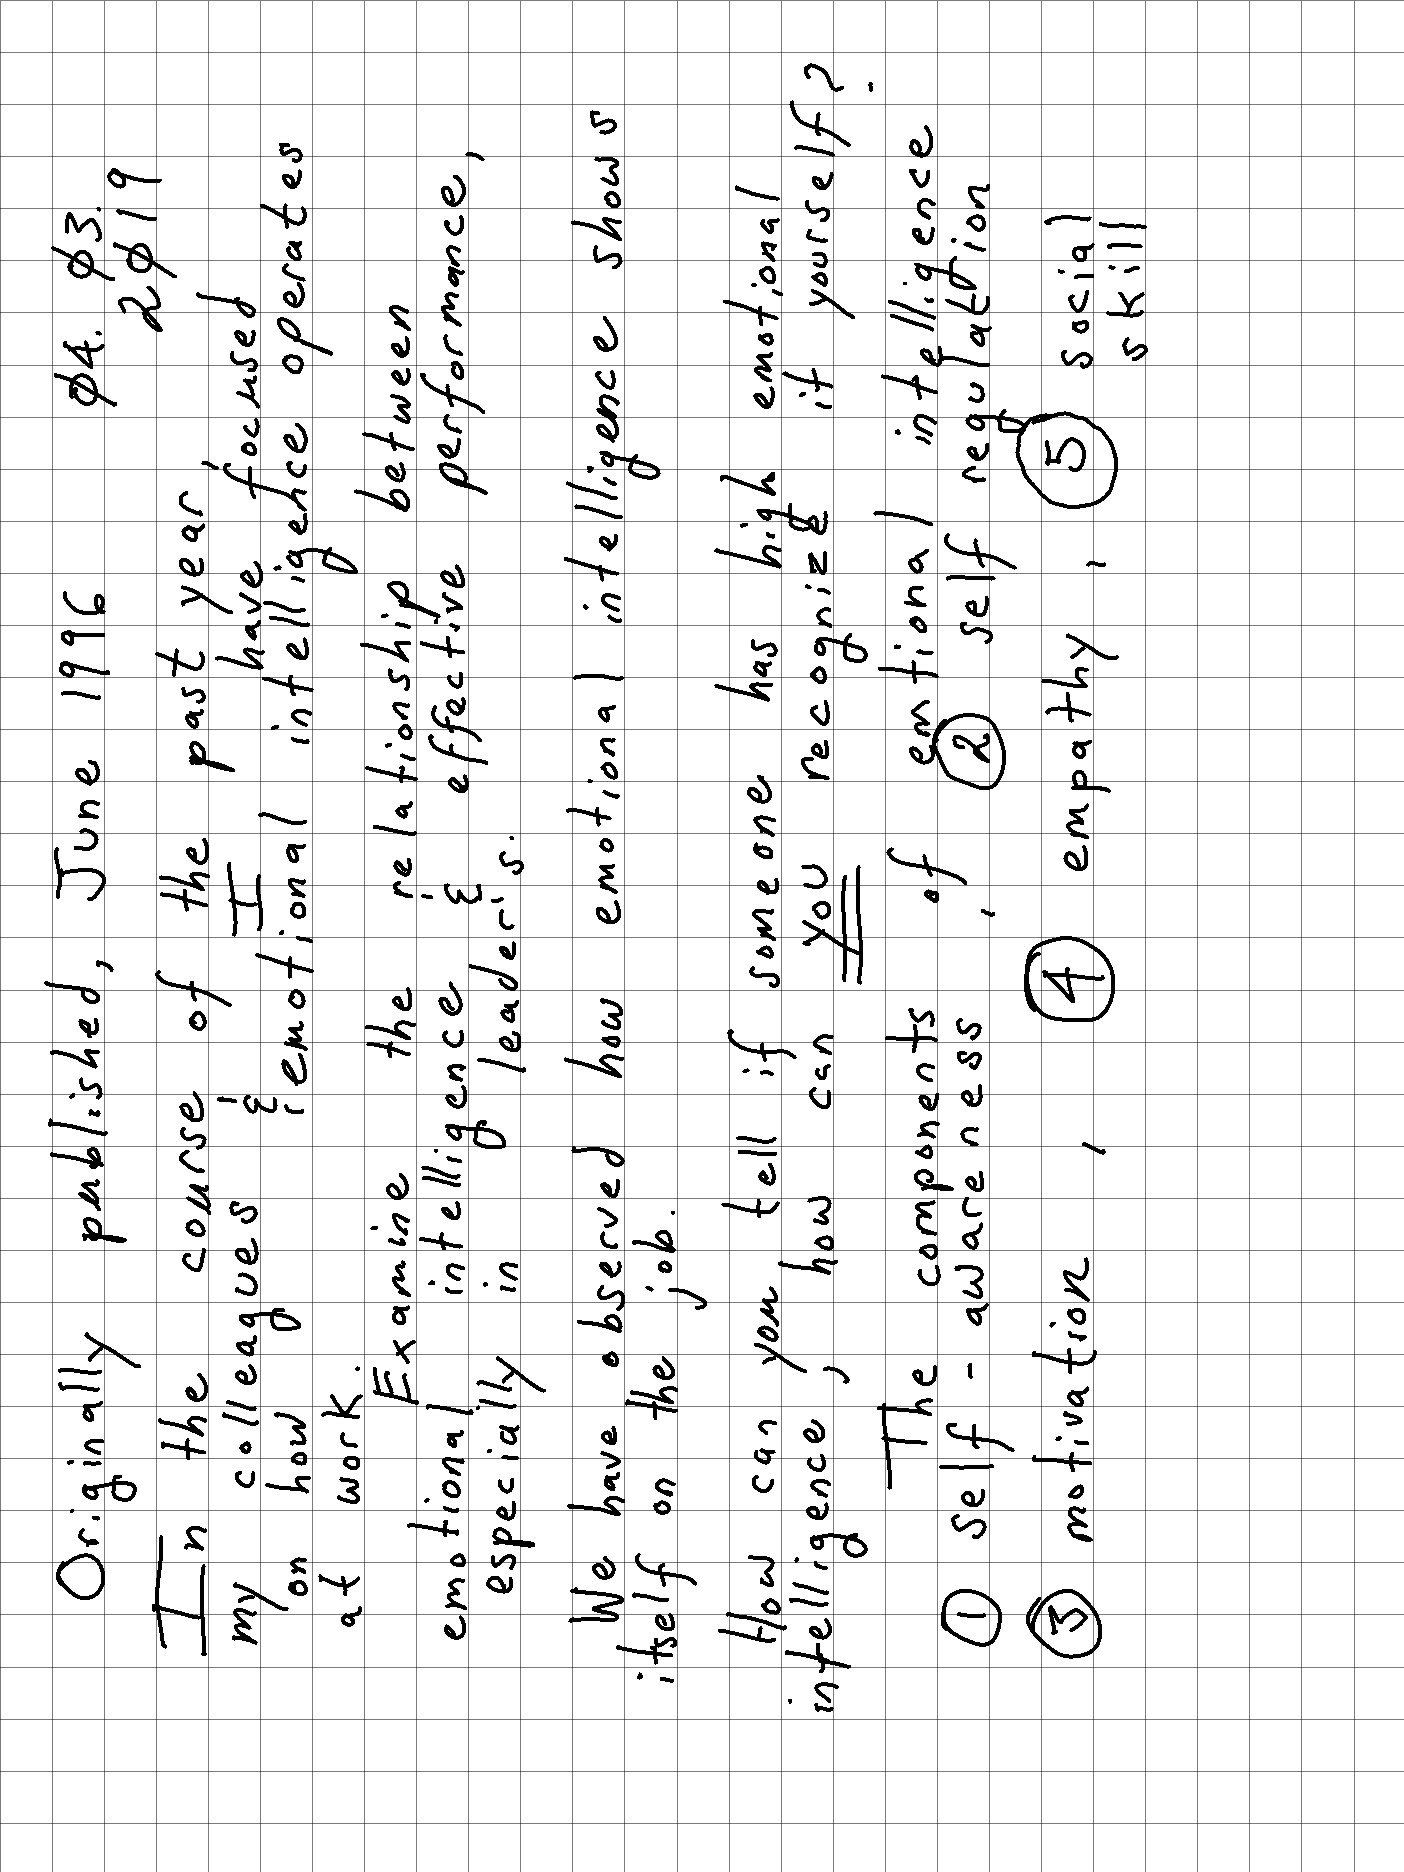 Originally published, June 1996 04. 03. 2019
In the course of the past year,
my colleagues & I have focused
on how emotional intelligence operates
at work. Examine the relationship between
emotional intelligence & effective performance,
especially in leader's.
We have observed how emotional intelligence shows
itself on the job.
How can you tell if someone has high emotional
intelligence, how can you recognize it yourself?
The components of emtional intelligence
① self-awareness, ② self regulation
③ motivation, ④ empathy, ⑤ social
skill